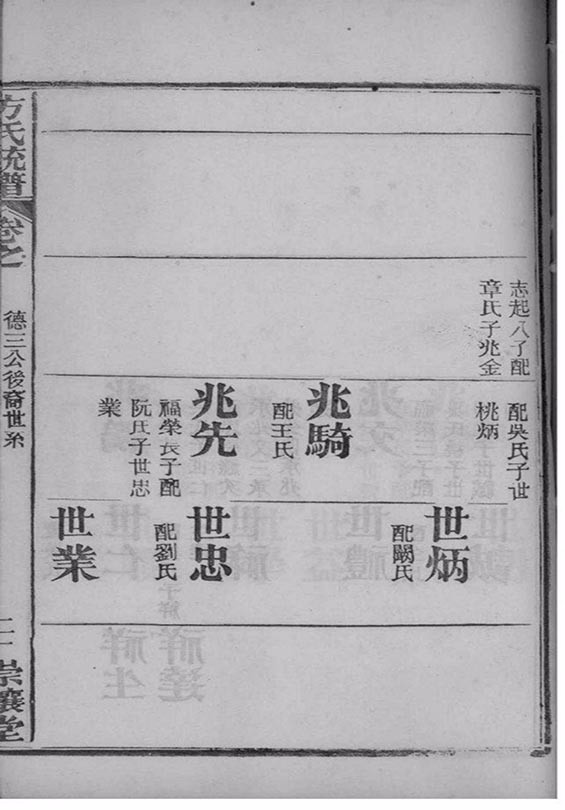 志起八了配
章氏子兆金
配吳氏子世
桃炳
兆騎
配王氏
兆先
福榮長子配
阮氏子世忠
業
世炳
配闕氏
世忠
配劉氏
世業
方氏統譜
卷之
德三公後裔世系
崇讓堂